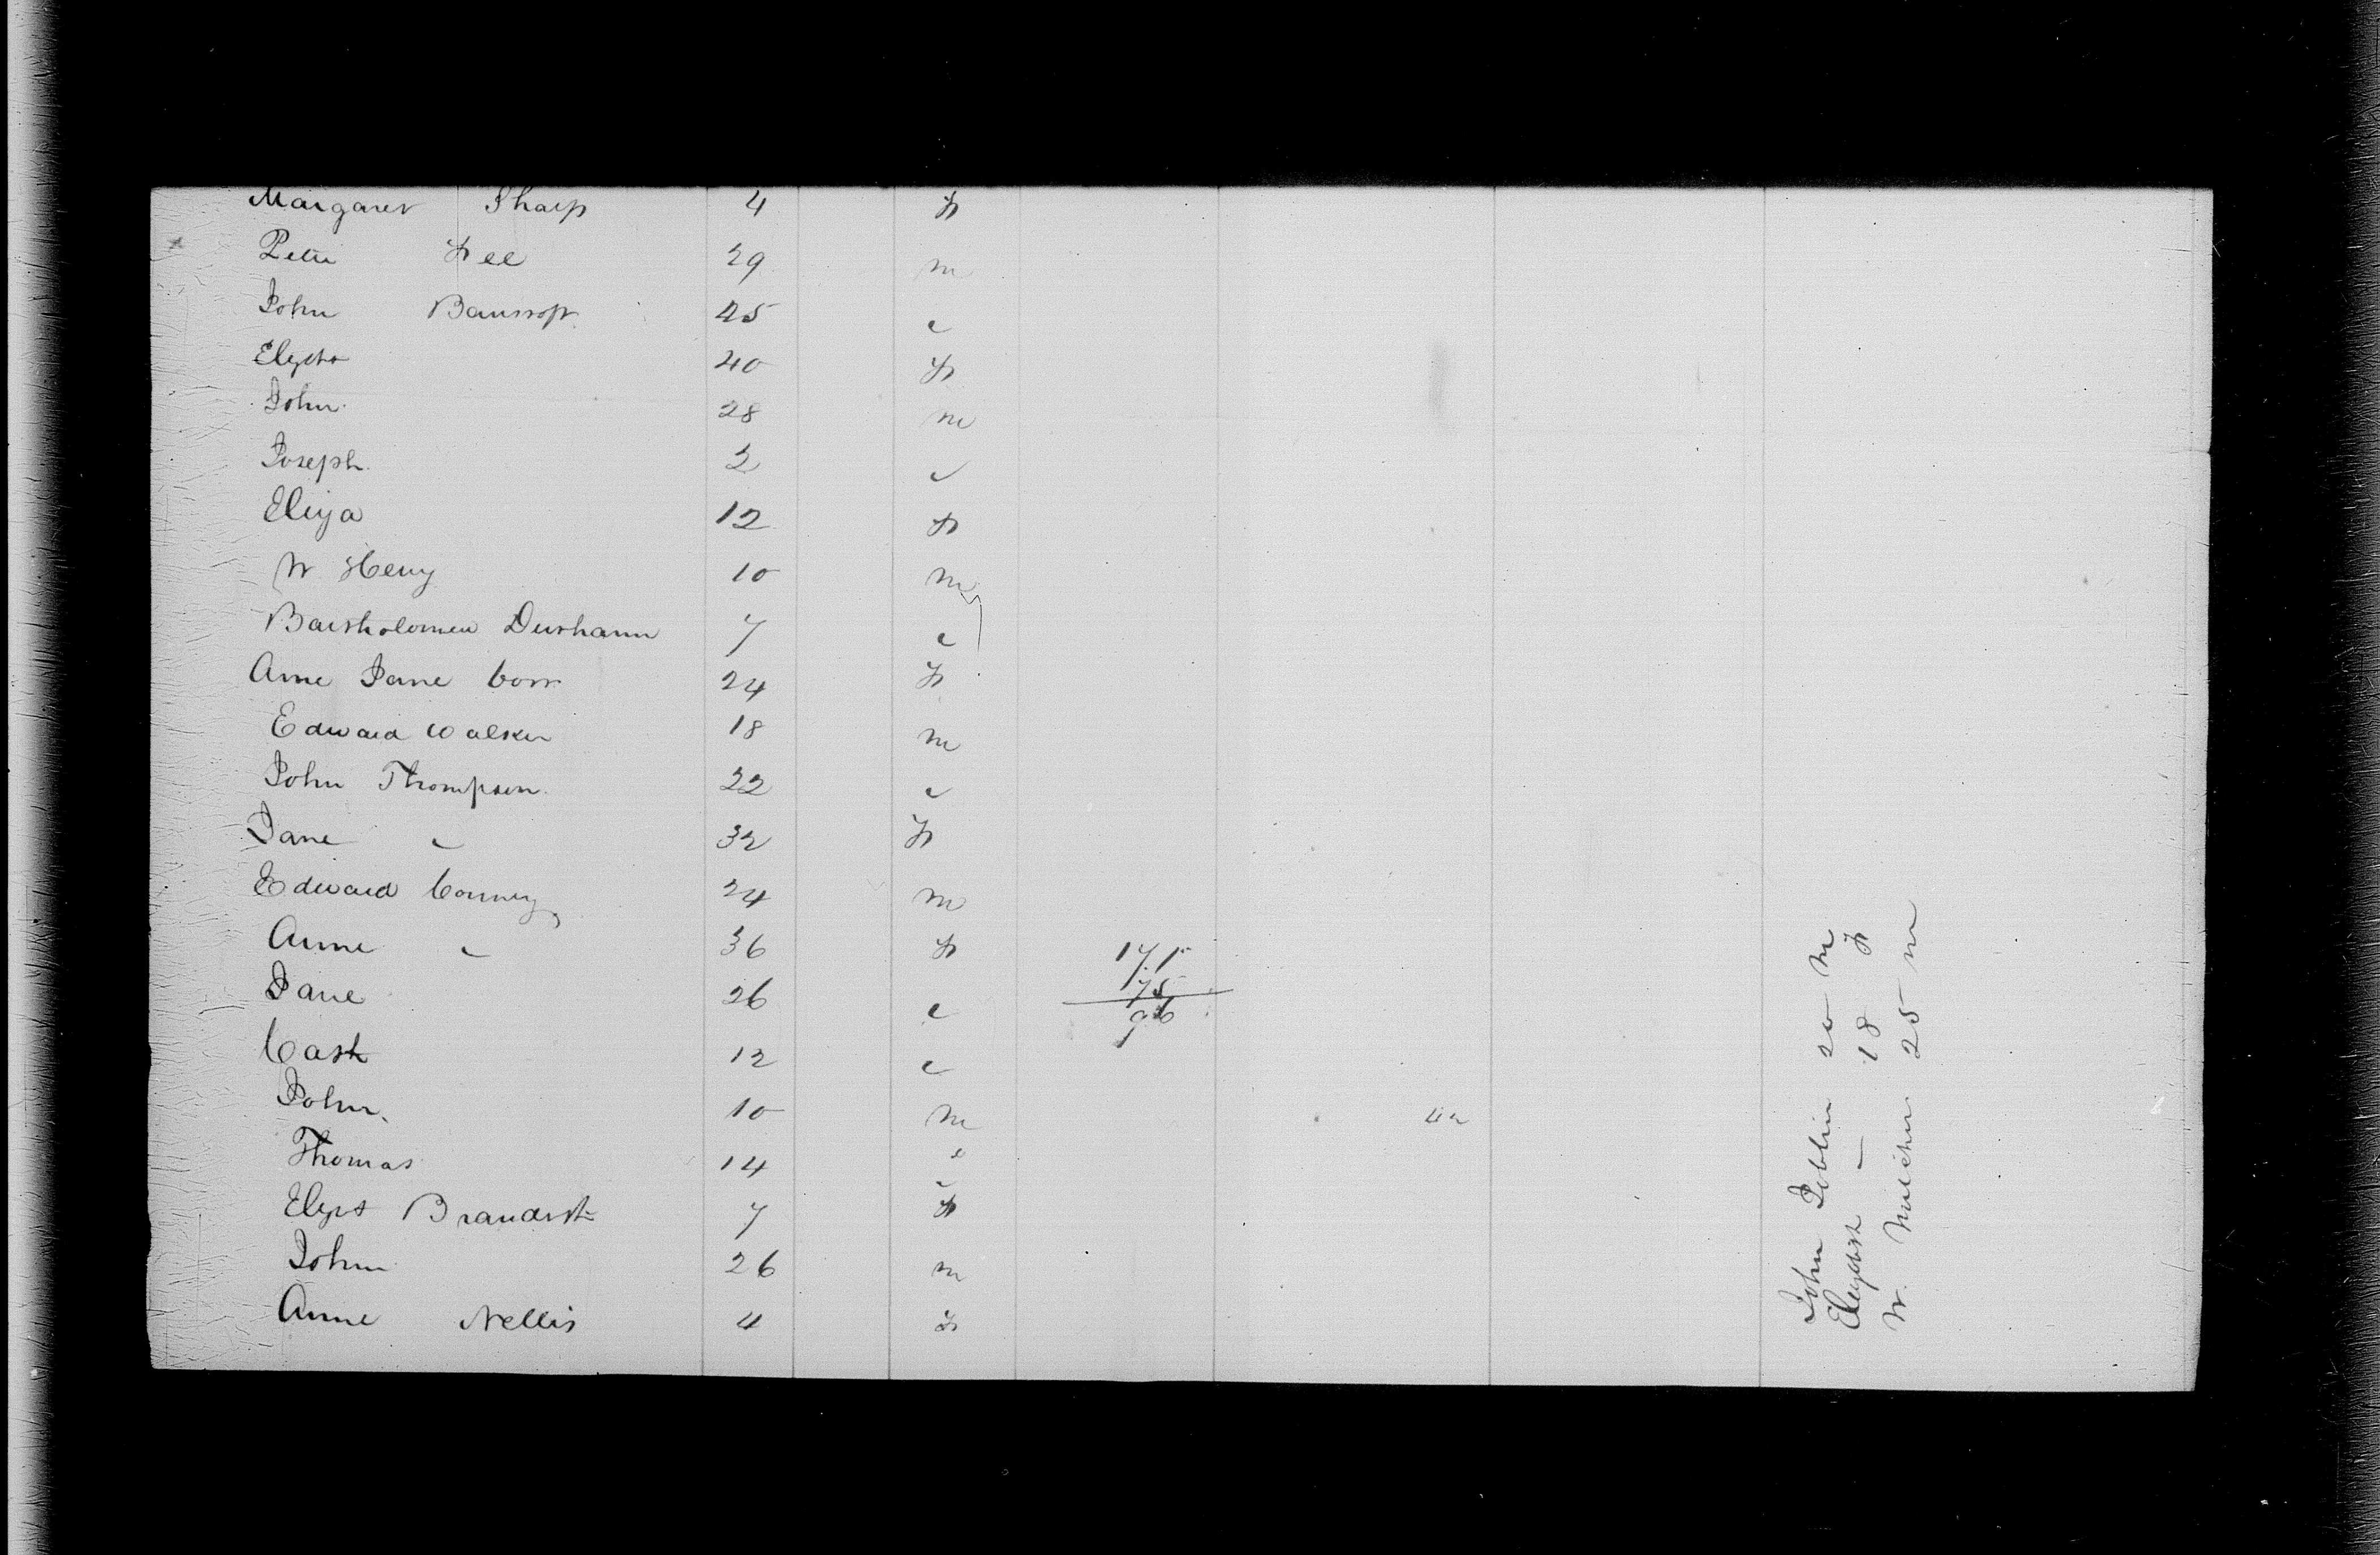 Margaret Sharp 4 F
Peter Fee 29 m
John 45 "
Elizth 40 F
John 28 m
Joseph 2 "
Eliza 12 F
W Henry 10 m
Bartholomew Durham 7 "
Anne Jane Corr 24 F
Edward Walker 18 m
John Thompson 22 "
Jane " 32 F
Edward 24 m
Anne " 36 F
Jane 26 "
Cath 12 "
John 10 m
Thomas 14 "
Elizt 7 F
John 26 m
Anne Nellis 4 F
171
75
96
John 20 m
Elizabth — 18 F
W. 25 m